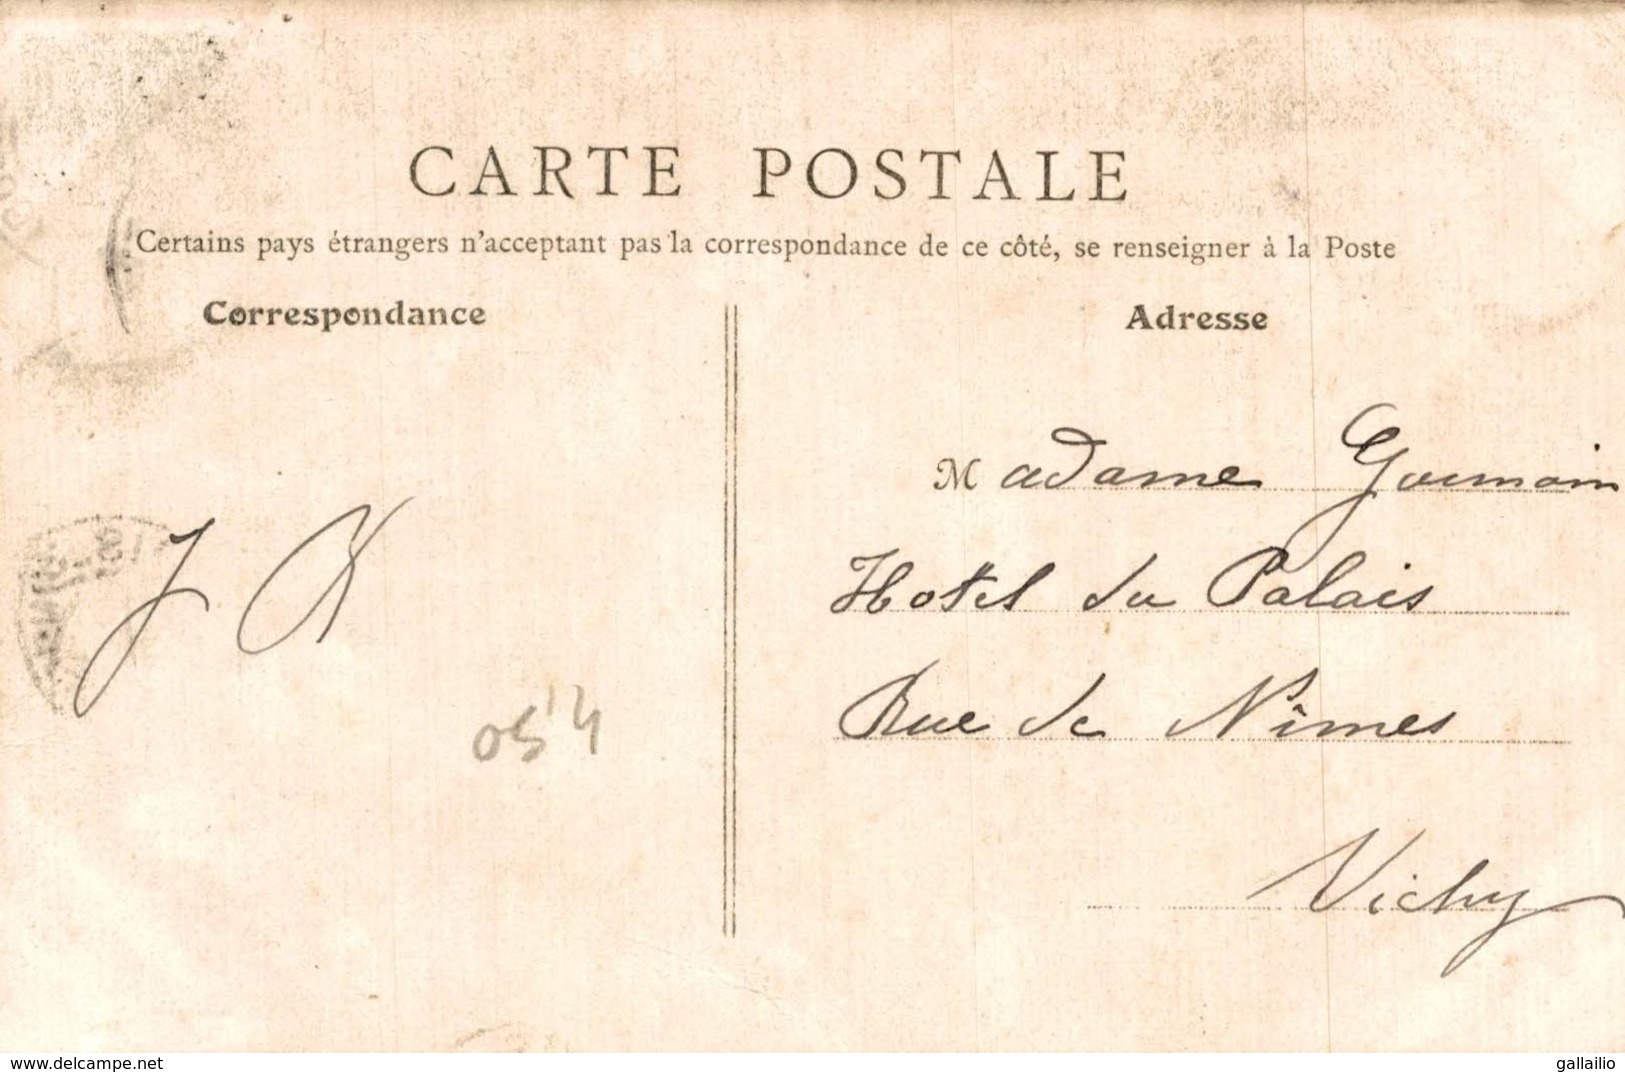 CARTE POSTALE
Certains pays étrangers n'acceptant pas la correspondance de ce côté, se renseigner à la Poste
Correspondance
Adresse
Madame Germain
Hotel du Palais
Rue de Nîmes
Vichy
J
054
www.delcampe.net
gallailio